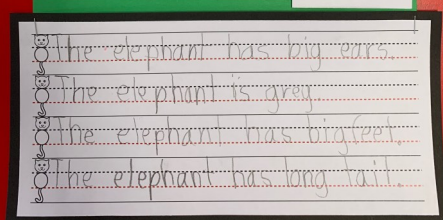 The elephant has big ears.
The elephant is grey
The elephant has bigfeet.
The elephant has long tail.